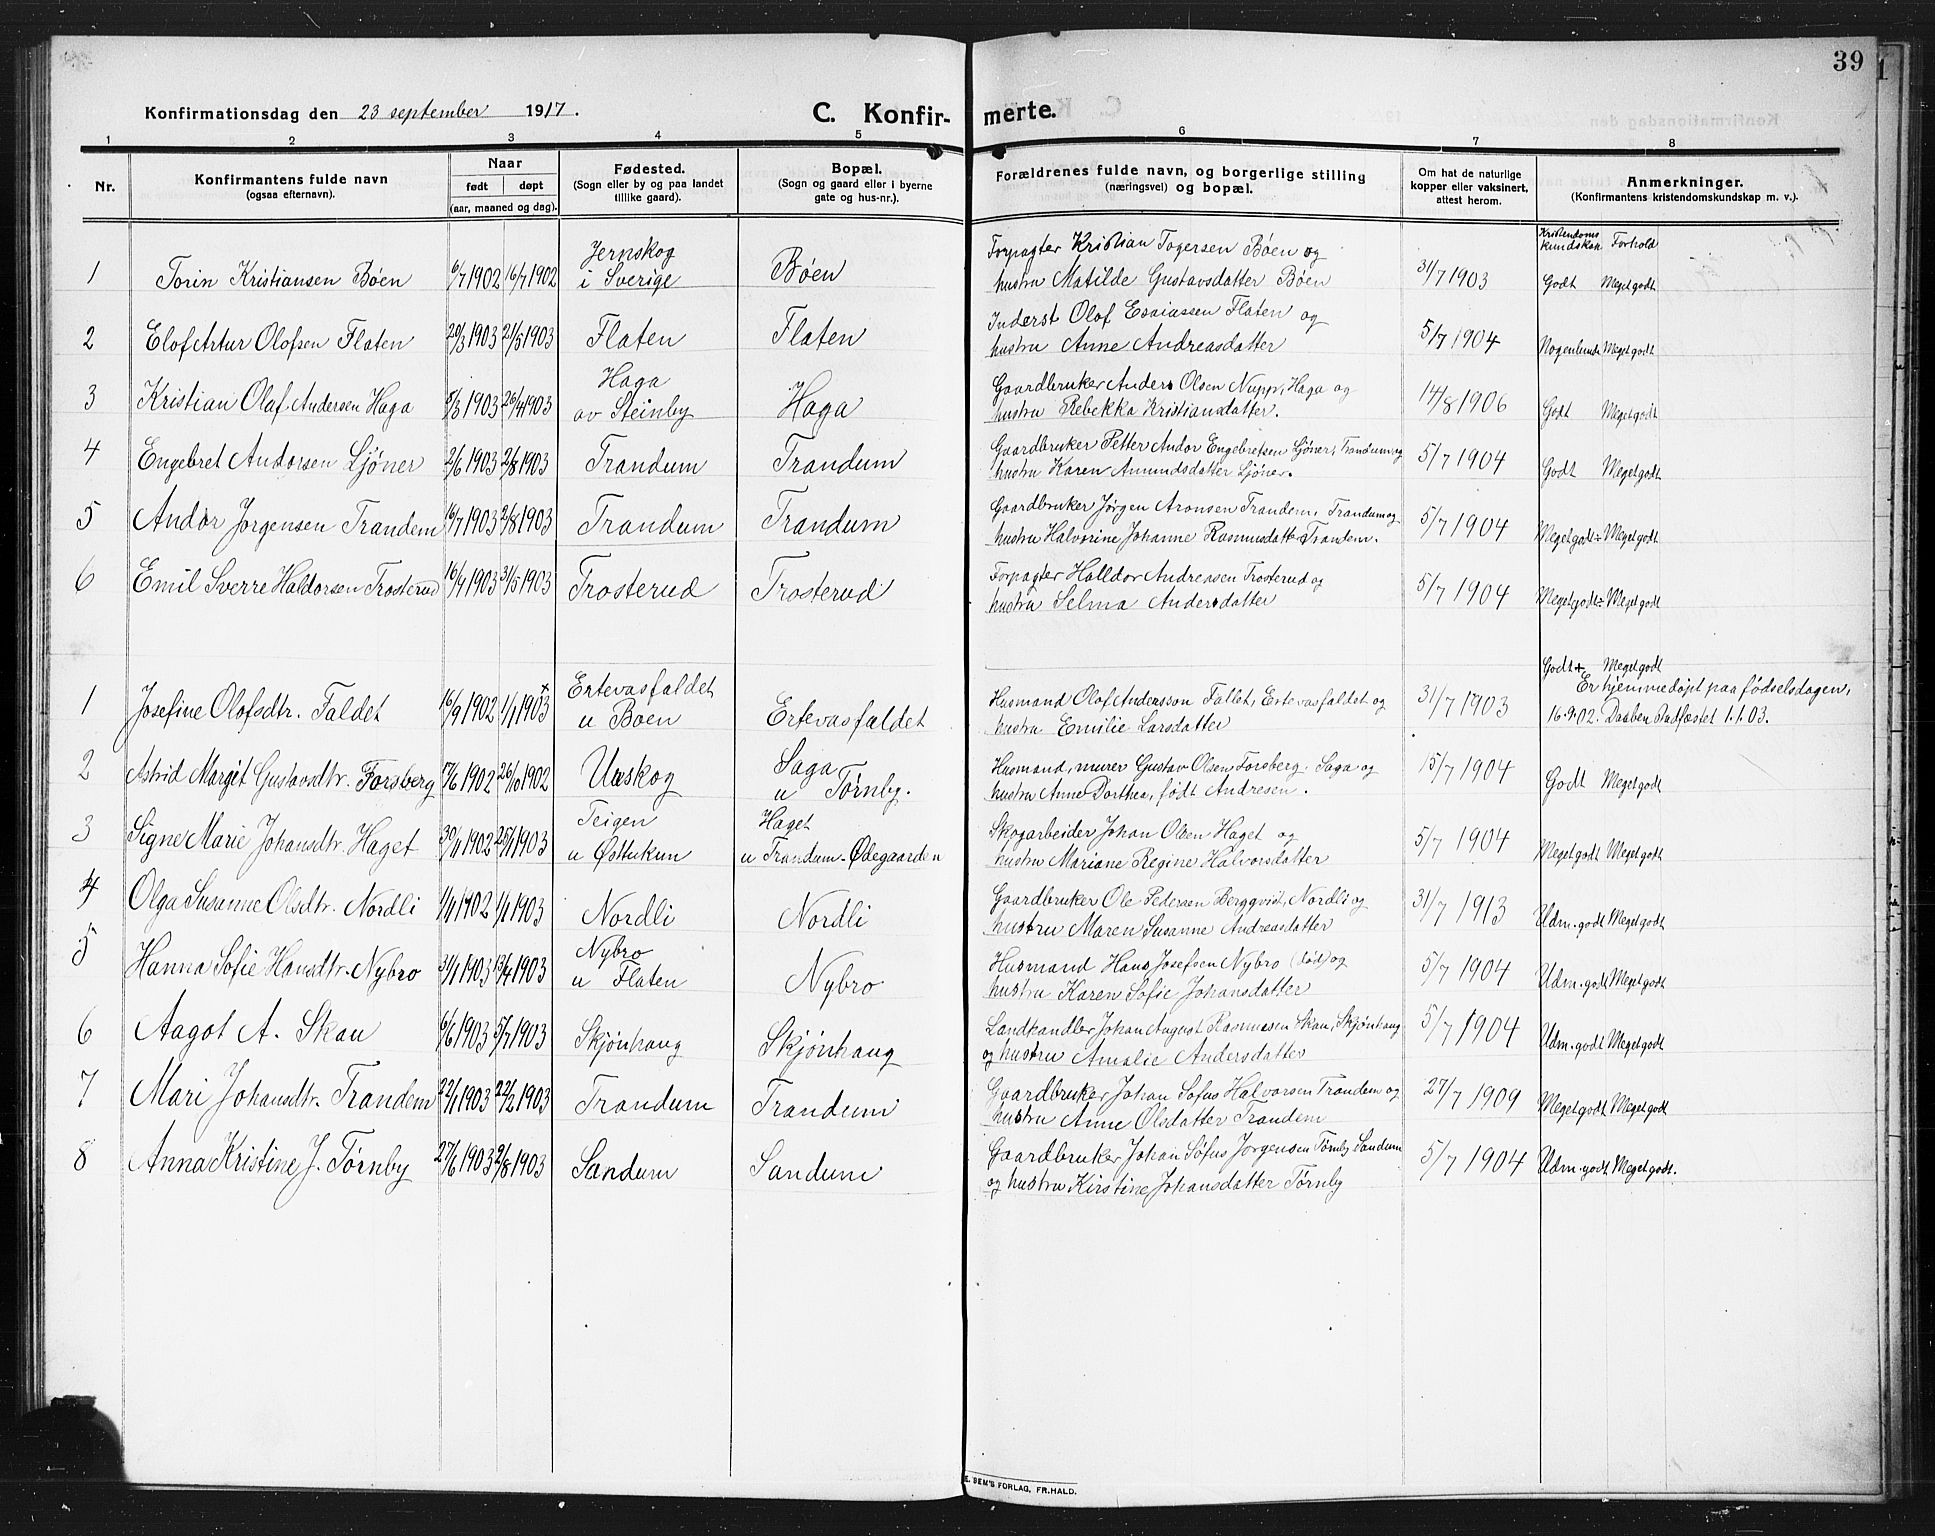 39
Konfirmationsdag den 23 september 1917.
C. Konfirmerte.
1 2 3 4 5 6 7 8
Nr.
Konfirmantens fulde navn
(ogsaa efternavn).
Naar
født døpt
(aar, maaned og dag).
Fødested.
(Sogn eller by og paa landet
tillike gaard).
Bopæl.
(Sogn og gaard eller i byerne
gate og hus-nr.).
Forældrenes fulde navn, og borgerlige stilling
(næringsvei) og bopæl.
Om hat de naturlige
kopper eller vaksinert,
attest herom.
Anmerkninger.
(Konfirmantens kristendomskundskap m. v.).
Kristendoms
kundskap Forhold
1 Torin Kristiansen Bøen 6/7 1902 16/7 1902 Jernskog
i Sverige Bøen Forpagter Kristian Togersen Bøen og
hustru Matilde Gustavsdatter Bøen 31/7 1903 Godt Megetgodt
2 Elof Artur Olofsen Flaten 20/3 1903 21/5 1903 Flaten Flaten Inderst Olof Esaiassen Flaten og
hustru Anne Andreasdatter 5/7 1904 Nogenlunde Megetgodt
3 Kristian Olaf Andersen Haga 8/3 1903 26/4 1903 Haga
av Steinby Haga Gaardbruker Anders Olsen Nupp, Haga og
hustru Rebekka Kristiansdatter. 14/8 1906 Godt Megetgodt
4 Engebret Andorsen Ljöner 2/6 1903 2/8 1903 Trandum Trandum Gaardbruker Petter Andor Engebretsen Ljöner, Trandum og
hustru Karen Amundsdatter Ljöner. 5/7 1904 Godt Megetgodt
5 Andor Jorgensen Trandem 16/7 1903 2/8 1903 Trandum Trandum Gaardbruker Jørgen Aronsen Trandem, Trandum og
hustru Halvorine Johanne Rasmusdatter Trandem. 5/7 1904 Megetgodt÷ Megetgodt
6 Emil Sverre Haldorsen Trosterud 16/4 1903 31/5 1903 Trosterud Trosterud Forpagter Halldor Andreasen Trosterud og
hustru Selma Andersdatter 5/7 1904 Megetgodt÷ Megetgodt
1 Josefine Olofsdtr. Faldet 16/9 1902 1/1 1903 + Ertevasfaldet
u Boen Ertevasfaldet Husmand Olof Andersson Fallet, Ertevasfaldet og
hustru Emilie Larsdatter 31/7 1903 Godt+ Megetgodt
Er hjemmedøpt paa fødselsdagen,
16.9.02. Daaben stadfæstet 1.1.03.
2 Astrid Margit Gustavsdtr. Forsberg 17/6 1902 26/10 1902 Uaskog Saga
u Tørnby. Husmand, murer Gustav Olsen Forsberg, Saga og
hustru Anne Dorthea, født Andresen. 15/7 1904 Godt Megetgodt
3 Signe Marie Johansdtr. Haget 30/11 1902 25/1 1903 Teigen
u Østtukun Haget
u Trandum-Ødegaarden Skogarbeider Johan Olsen Haget og
hustru Mariane Regine Halvorsdatter 5/7 1904 Megetgodt Megetgodt
4 Olga Susanne Olsdtr. Nordli 1/11 1902 1/1 1903 Nordli Nordli Gaardbruker Ole Pedersen Bergqvist, Nordli og
hustru Maren Susanne Andreasdatter 31/7 1913 Udm.godt Megetgodt
5 Hanna Sofie Hansdtr. Nybro 31/1 1903 13/4 1903 Nybro
u Flaten Nybro Husmand Hans Josefsen Nybro (død) og
hustru Karen Sofie Johansdatter 5/7 1904 Udm.godt Megetgodt
6 Aagot A. Skau 6/6 1903 5/7 1903 Skjönhaug Skjönhaug Landhandler Johan August Rasmussen Skau, Skjönhaug
og hustru Amalie Andersdatter 5/7 1904 Udm.godt Megetgodt
7 Mari Johansdtr. Trandem 22/1 1903 22/2 1903 Trandum Trandum Gaardbruker Johan Sofus Halvorsen Trandem og
hustru Anne Olsdatter Trandem 27/7 1909 Megetgodt Megetgodt
8 Anna Kristine J. Tørnby 27/6 1903 2/8 1903 Sandum Sandum Gaardbruker Johan Sofus Jorgensen Tørnby Sandum
og hustru Kirstine Johansdatter Tørnby 5/7 1904 Udm.godt Megetgodt.
E. SEM'S FORLAG, FR.HALD.